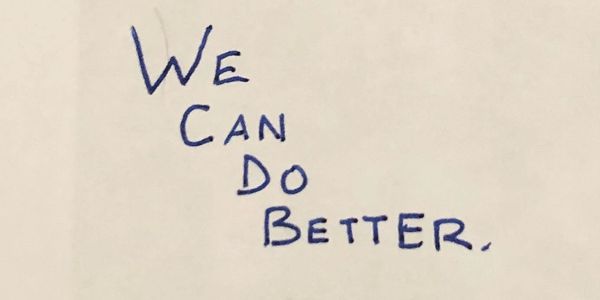 We
Can
Do
Better.